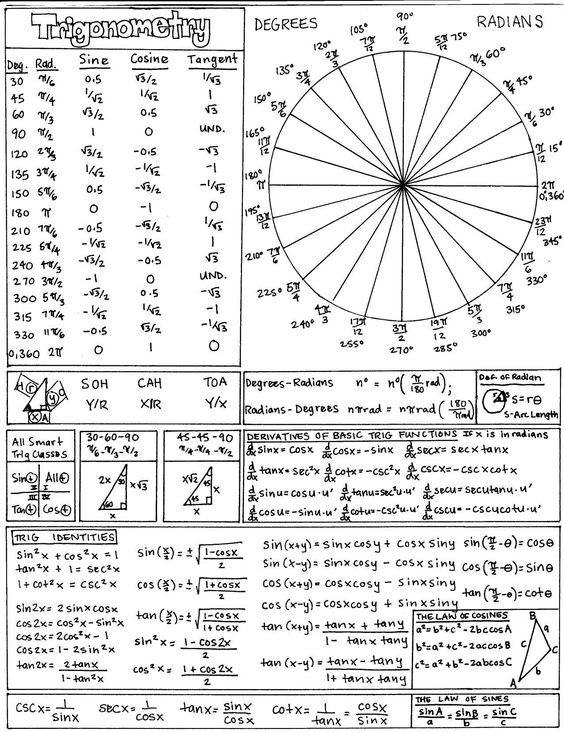 Trigonometry
Deg. Rad. Sine Cosine Tangent
30 π/6 0.5 √3/2 1/√3
45 π/4 1/√2 1/√2 1
60 π/3 √3/2 0.5 √3
90 π/2 1 0 UND.
120 2π/3 √3/2 -0.5 -√3
135 3π/4 1/√2 -1/√2 -1
150 5π/6 0.5 -√3/2 -1/√3
180 π 0 -1 0
210 7π/6 -0.5 -√3/2 1/√3
225 5π/4 -1/√2 -1/√2 1
240 4π/3 -√3/2 -0.5 √3
270 3π/2 -1 0 UND.
300 5π/3 -√3/2 0.5 -√3
315 7π/4 -1/√2 1/√2 -1
330 11π/6 -0.5 √3/2 -1/√3
0,360 2π 0 1 0
DEGREES RADIANS
90° π/2
75° 5π/12
60° π/3
45° π/4
30° π/6
15° π/12
2π 0,360°
23π/12 345°
11π/6 330°
7π/4 315°
5π/3 300°
19π/12 285°
3π/2 270°
17π/12 255°
4π/3 240°
5π/4 225°
210° 7π/6
195° 13π/12
180° π
165° 11π/12
150° 5π/6
135° 3π/4
120° 2π/3
105° 7π/12
H r y O
X A
SOH CAH TOA
Y/R X/R Y/X
Degrees-Radians n° = n°(π/180 rad);
Radians-Degrees nπrad = nπrad(180/πrad)
Def. of Radian
S=rθ
S-Arc Length
All Smart
Trig Classes
Sin+ All+
II I
III IV
Tan+ Cos+
30-60-90
π/6-π/3-π/2
2x 30 x√3
60
x
45-45-90
π/4-π/4-π/2
x√2 45 x
45
x
DERIVATIVES OF BASIC TRIG FUNCTIONS If x is in radians
d/dx sinx = cosx d/dx cosx = -sinx d/dx secx = secx tanx
d/dx tanx = sec²x d/dx cotx = -csc²x d/dx cscx = -cscx cotx
d/dx sinu = cosu·u' d/dx tanu = sec²u·u' d/dx secu = secutanu·u'
d/dx cosu = -sinu·u' d/dx cotu = -csc²u·u' d/dx cscu = -cscucotu·u'
TRIG IDENTITIES
sin²x + cos²x = 1
tan²x + 1 = sec²x
1 + cot²x = csc²x
sin2x = 2sinxcosx
cos2x = cos²x - sin²x
cos2x = 2cos²x - 1
cos2x = 1 - 2sin²x
tan2x = 2tanx/1-tan²x
sin(x/2) = ±√1-cosx/2
cos(x/2) = ±√1+cosx/2
tan(x/2) = ±√1-cosx/1+cosx
sin²x = 1-cos2x/2
cos²x = 1+cos2x/2
sin(x+y) = sinx cosy + cosx siny
sin(x-y) = sinx cosy - cosx siny
cos(x+y) = cosxcosy - sinxsiny
cos(x-y) = cosxcosy + sinxsiny
tan(x+y) = tanx + tany/1 - tanx tany
tan(x-y) = tanx - tany/1 + tanx tany
sin(π/2-θ) = cosθ
cos(π/2-θ) = sinθ
tan(π/2-θ) = cotθ
THE LAW OF COSINES
a² = b²+c²-2bccosA
b² = a²+c²-2accosB
c² = a²+b²-2abcosC
B
a
c
C
b
A
cscx = 1/sinx secx = 1/cosx tanx = sinx/cosx cotx = 1/tanx = cosx/sinx
THE LAW OF SINES
sinA/a = sinB/b = sinC/c